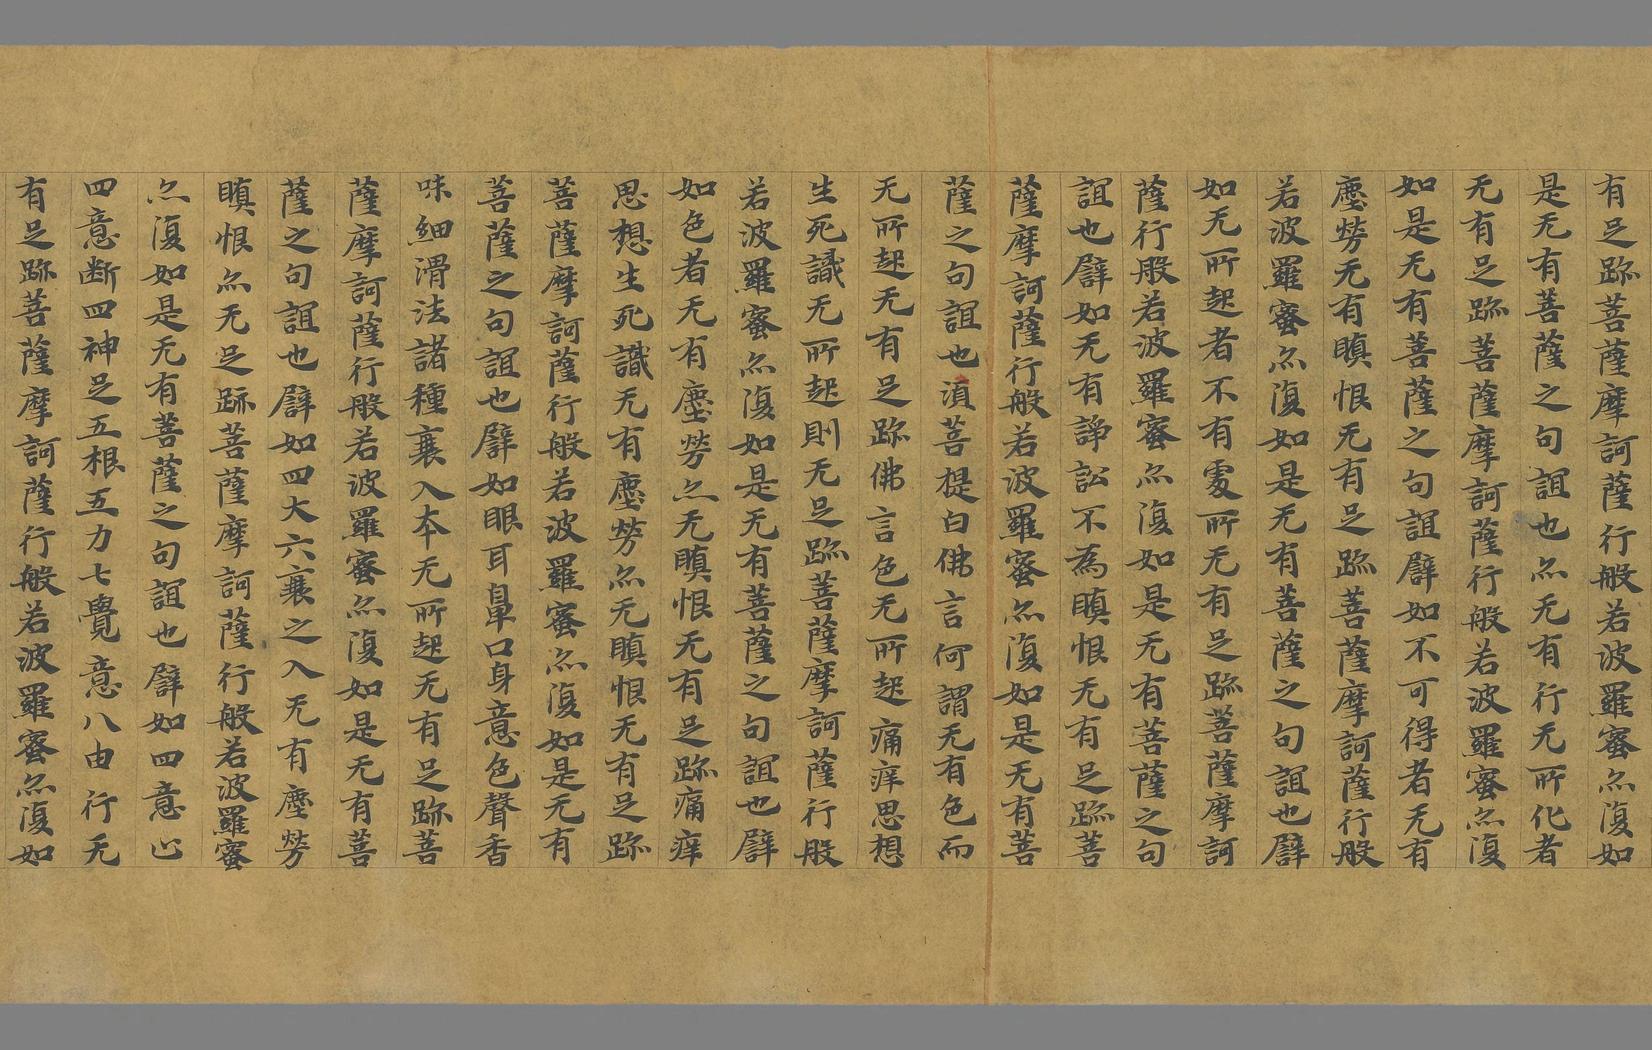 有足跡菩薩摩訶薩行般若波羅蜜亦復如
是无有菩薩之句誼也亦无有行无所化者
无有足跡菩薩摩訶薩行般若波羅蜜亦復
如是无有菩薩之句誼譬如不可得者无有
塵勞无有瞋恨无有足跡菩薩摩訶薩行般
若波羅蜜亦復如是无有菩薩之句誼也譬
如无所起者不有處所无有足跡菩薩摩訶
薩行般若波羅蜜亦復如是无有菩薩之句
誼也譬如无有諍訟不為瞋恨无有足跡菩
薩摩訶薩行般若波羅蜜亦復如是无有菩
薩之句誼也須菩提白佛言何謂无有色而
无所起无有足跡佛言色无所起痛痒思想
生死識无所起則无足跡菩薩摩訶薩行般
若波羅蜜亦復如是无有菩薩之句誼也譬
如色者无有塵勞亦无瞋恨无有足跡痛痒
思想生死識无有塵勞亦无瞋恨无有足跡
菩薩摩訶薩行般若波羅蜜亦復如是无有
菩薩之句誼也譬如眼耳鼻口身意色聲香
味細滑法諸種衰入本无所起无有足跡菩
薩摩訶薩行般若波羅蜜亦復如是无有菩
薩之句誼也譬如四大六衰之入无有塵勞
瞋恨亦无足跡菩薩摩訶薩行般若波羅蜜
亦復如是无有菩薩之句誼也譬如四意止
四意断四神足五根五力七覺意八由行无
有足跡菩薩摩訶薩行般若波羅蜜亦復如